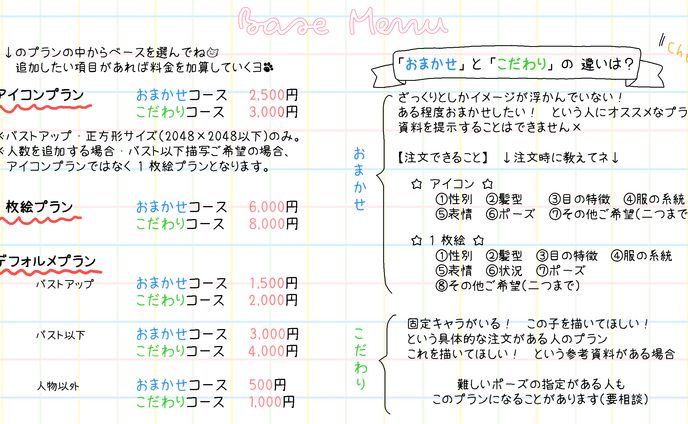 Base Menu
↓のプランの中からベースを選んでね
追加したい項目があれば料金を加算していくヨ
アイコンプラン おまかせコース 2,500円
こだわりコース 3,000円
※バストアップ・正方形サイズ(2048×2048以下)のみ。
※人数を追加する場合・バスト以下描写ご希望の場合、
アイコンプランではなく1枚絵プランとなります。
枚絵プラン おまかせコース 6,000円
こだわりコース 8,000円
デフォルメプラン
バストアップ おまかせコース 1,500円
こだわりコース 2,000円
バスト以下 おまかせコース 3,000円
こだわりコース 4,000円
人物以外 おまかせコース 500円
こだわりコース 1,000円
「おまかせ」と「こだわり」の 違いは?
おまかせ
ざっくりとしかイメージが浮かんでいない!
ある程度おまかせしたい! という人にオススメなプラ
資料を提示することはできません×
【注文できること】 ↓注文時に教えてネ↓
☆ アイコン ☆
①性別 ②髪型 ③目の特徴 ④服の系統
⑤表情 ⑥ポーズ ⑦その他ご希望(二つまで)
☆ 1枚絵 ☆
①性別 ②髪型 ③目の特徴 ④服の系統
⑤表情 ⑥状況 ⑦ポーズ
⑧その他ご希望(二つまで)
こだわり
固定キャラがいる! この子を描いてほしい!
という具体的な注文がある人のプラン
これを描いてほしい! という参考資料がある場合
難しいポーズの指定がある人も
このプランになることがあります(要相談)